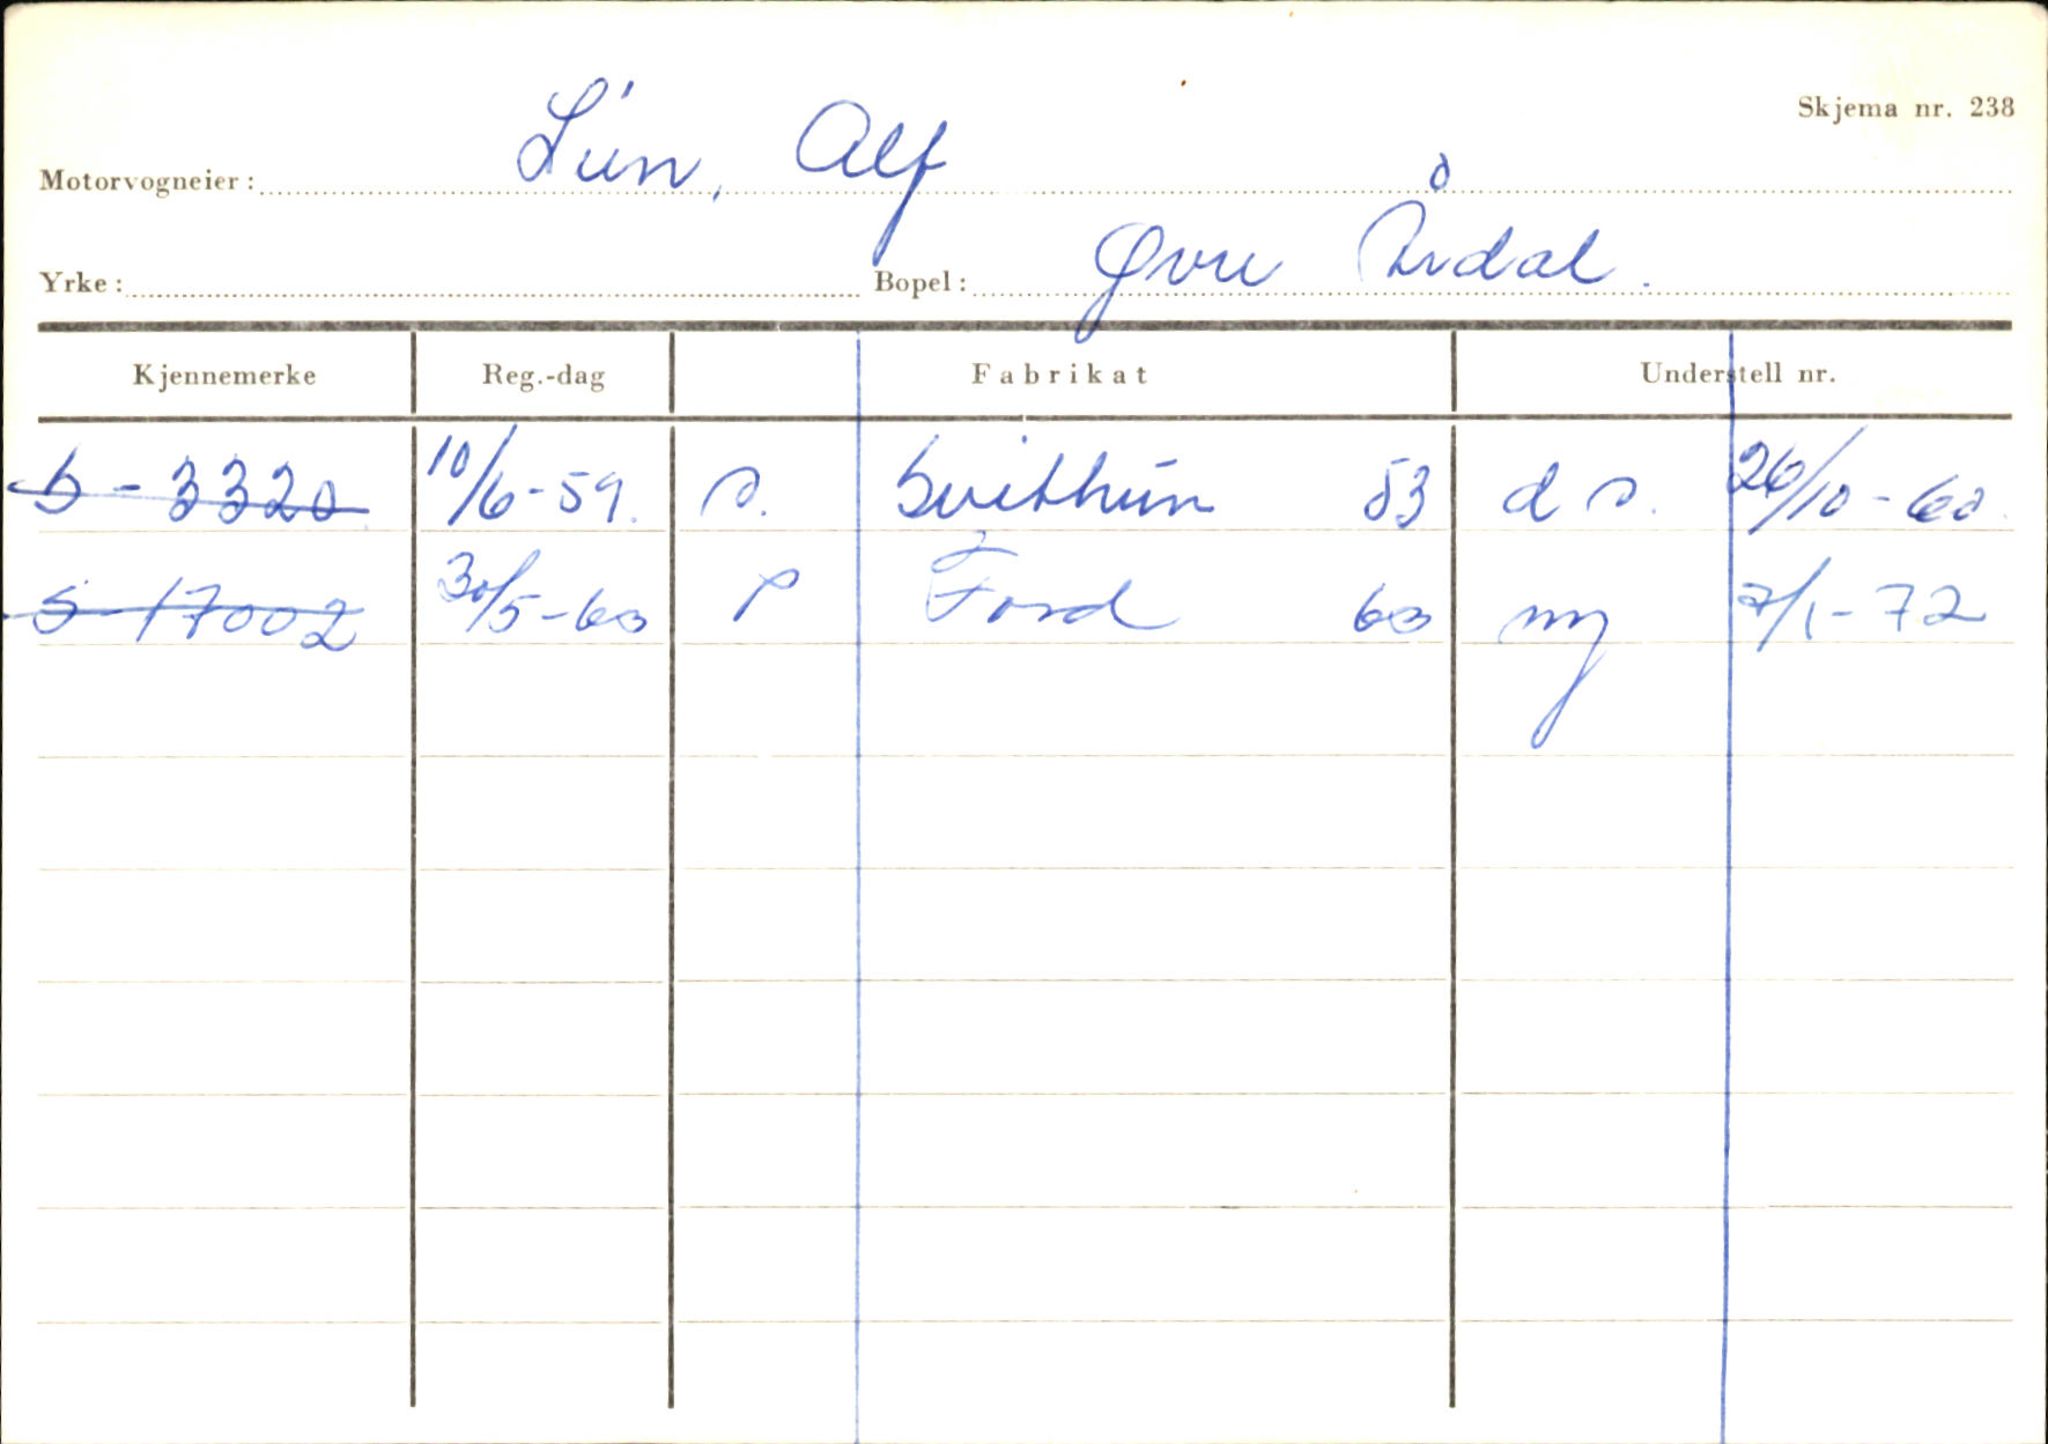 Skjema nr. 238
Motorvogneier: Lun, Alf
Yrke: Bopel: Øvre Årdal.
Kjennemerke Reg.-dag Fabrikat Understell nr.
S-3320 10/6-59. s. Svithun 53 d s. 26/10-60.
S-17002 30/5-60 P Ford 60 ny 7/1-72